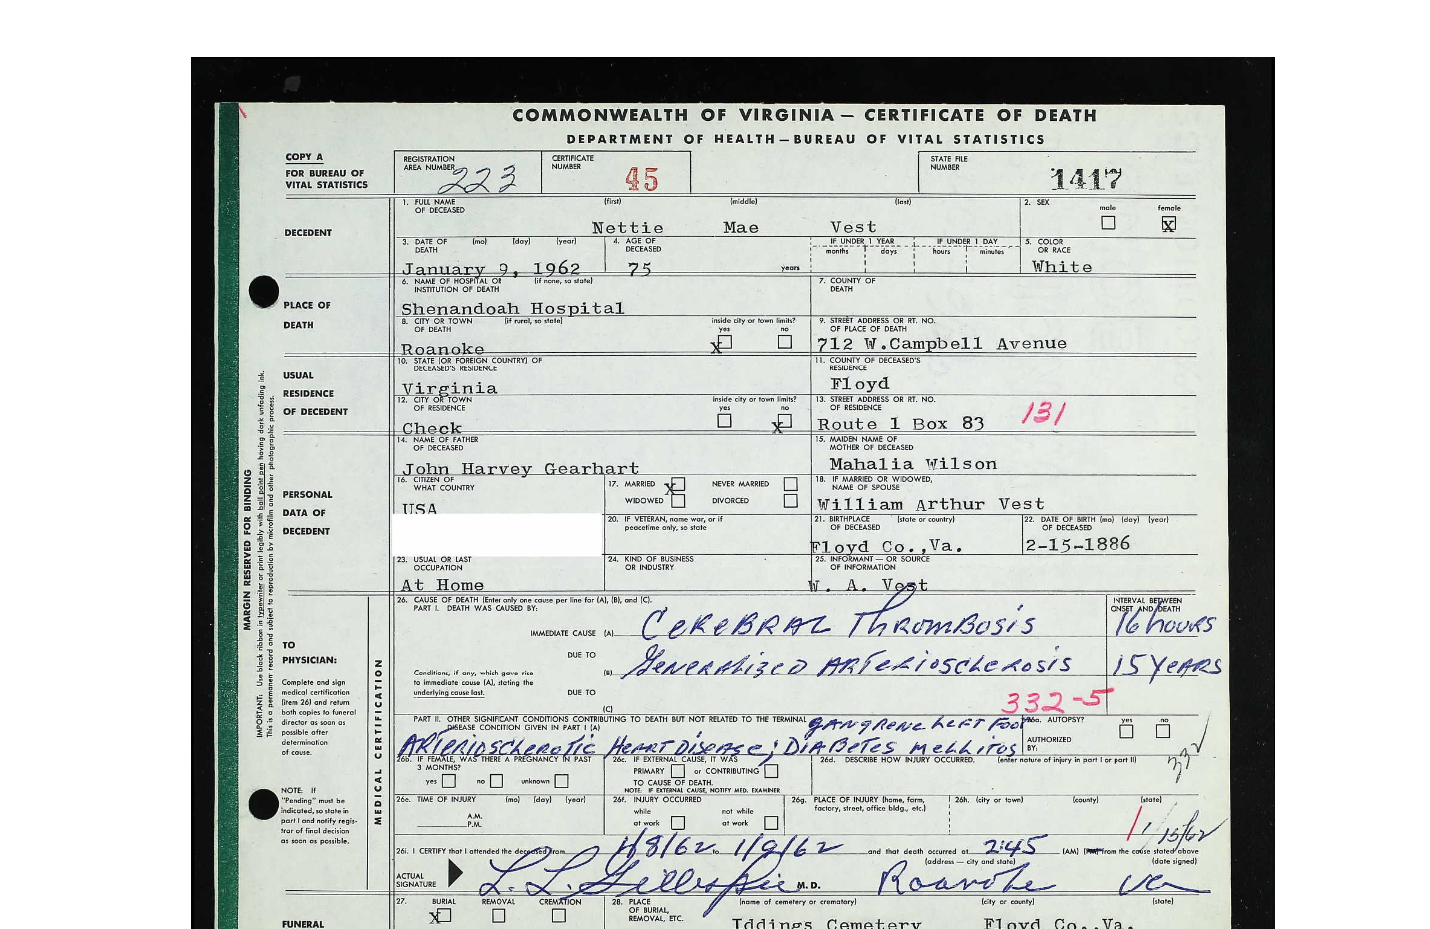 COMMONWEALTH OF VIRGINIA — CERTIFICATE OF DEATH
DEPARTMENT OF HEALTH — BUREAU OF VITAL STATISTICS
COPY A
FOR BUREAU OF
VITAL STATISTICS
REGISTRATION
AREA NUMBER
223
CERTIFICATE
NUMBER
45
STATE FILE
NUMBER
1417
DECEDENT
1. FULL NAME
OF DECEASED
(first) (middle) (last)
Nettie Mae Vest
2. SEX
male female
X
3. DATE OF (mo) (day) (year)
DEATH
January 9, 1962
4. AGE OF
DECEASED
75 years
IF UNDER 1 YEAR IF UNDER 1 DAY
months days hours minutes
5. COLOR
OR RACE
White
PLACE OF
DEATH
6. NAME OF HOSPITAL OR (if none, so state)
INSTITUTION OF DEATH
Shenandoah Hospital
7. COUNTY OF
DEATH
8. CITY OR TOWN (if rural, so state)
OF DEATH
Roanoke
inside city or town limits?
yes no
X
9. STREET ADDRESS OR RT. NO.
OF PLACE OF DEATH
712 W.Campbell Avenue
USUAL
RESIDENCE
OF DECEDENT
10. STATE (OR FOREIGN COUNTRY) OF
DECEASED'S RESIDENCE
Virginia
11. COUNTY OF DECEASED'S
RESIDENCE
Floyd
12. CITY OR TOWN
OF RESIDENCE
Check
inside city or town limits?
yes no
X
13. STREET ADDRESS OR RT. NO.
OF RESIDENCE
Route 1 Box 83
131
PERSONAL
DATA OF
DECEDENT
14. NAME OF FATHER
OF DECEASED
John Harvey Gearhart
15. MAIDEN NAME OF
MOTHER OF DECEASED
Mahalia Wilson
16. CITIZEN OF
WHAT COUNTRY
USA
17. MARRIED X NEVER MARRIED
WIDOWED DIVORCED
18. IF MARRIED OR WIDOWED,
NAME OF SPOUSE
William Arthur Vest
20. IF VETERAN, name war, or if
peacetime only, so state
21. BIRTHPLACE (state or country)
OF DECEASED
Floyd Co.,Va.
22. DATE OF BIRTH (mo) (day) (year)
OF DECEASED
2-15-1886
23. USUAL OR LAST
OCCUPATION
At Home
24. KIND OF BUSINESS
OR INDUSTRY
25. INFORMANT — OR SOURCE
OF INFORMATION
W. A. Vest
MARGIN RESERVED FOR BINDING
IMPORTANT: Use black ribbon in typewriter or print legibly with ball point pen having dark unfading ink.
This is a permanent record and subject to reproduction by microfilm and other photographic process.
TO
PHYSICIAN:
Complete and sign
medical certification
(item 26) and return
both copies to funeral
director as soon as
possible after
determination
of cause.
NOTE: If
"Pending" must be
indicated, so state in
part I and notify regis-
trar of final decision
as soon as possible.
MEDICAL CERTIFICATION
26. CAUSE OF DEATH (Enter only one cause per line for (A), (B), and (C).
PART I. DEATH WAS CAUSED BY:
INTERVAL BETWEEN
ONSET AND DEATH
IMMEDIATE CAUSE (A) CEREBRAL THROMBOSIS 16 hours
DUE TO
(B) GENERALIZED ARTERIOSCLEROSIS 15 YEARS
Conditions, if any, which gave rise
to immediate cause (A), stating the
underlying cause last.
DUE TO
(C)
332-5
PART II. OTHER SIGNIFICANT CONDITIONS CONTRIBUTING TO DEATH BUT NOT RELATED TO THE TERMINAL
DISEASE CONDITION GIVEN IN PART I (A)
GANGRENE LEFT FOOT
ARTERIOSCLEROTIC HEART DISEASE; DIABETES MELLITUS
26a. AUTOPSY? yes no
AUTHORIZED
BY:
332
26b. IF FEMALE, WAS THERE A PREGNANCY IN PAST
3 MONTHS?
yes no unknown
26c. IF EXTERNAL CAUSE, IT WAS
PRIMARY or CONTRIBUTING
TO CAUSE OF DEATH.
NOTE: IF EXTERNAL CAUSE, NOTIFY MED. EXAMINER
26d. DESCRIBE HOW INJURY OCCURRED. (enter nature of injury in part I or part II)
26e. TIME OF INJURY (mo) (day) (year)
A.M.
P.M.
26f. INJURY OCCURRED
while not while
at work at work
26g. PLACE OF INJURY (home, farm,
factory, street, office bldg., etc.)
26h. (city or town) (county) (state)
26i. I CERTIFY that I attended the deceased from 1/8/62 to 1/9/62 and that death occurred at 2:45 (AM) (PM) from the cause stated above
(address — city and state) (date signed)
ACTUAL
SIGNATURE
L. L. Gillespie M.D. Roanoke Va
FUNERAL
27. BURIAL REMOVAL CREMATION
X
28. PLACE
OF BURIAL,
REMOVAL, ETC.
(name of cemetery or crematory) (city or county) (state)
Iddings Cemetery Floyd Co., Va.